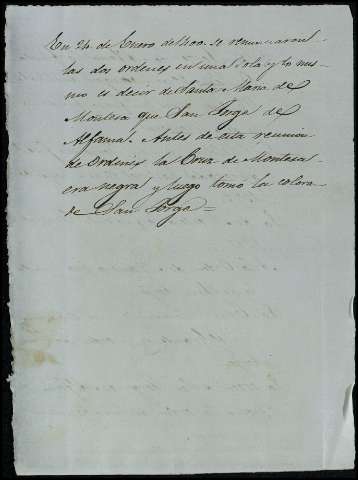 En 24 de Enero de 1400 se reunieron
las dos ordenes en una sola y lo mis
mo es decir de Santa Maria de
Montesa que San Jorge de
Alfama. Antes de esta reunion
de Ordenes la Cruz de Montesa
era negra y luego tomó la colora
de San Jorge =